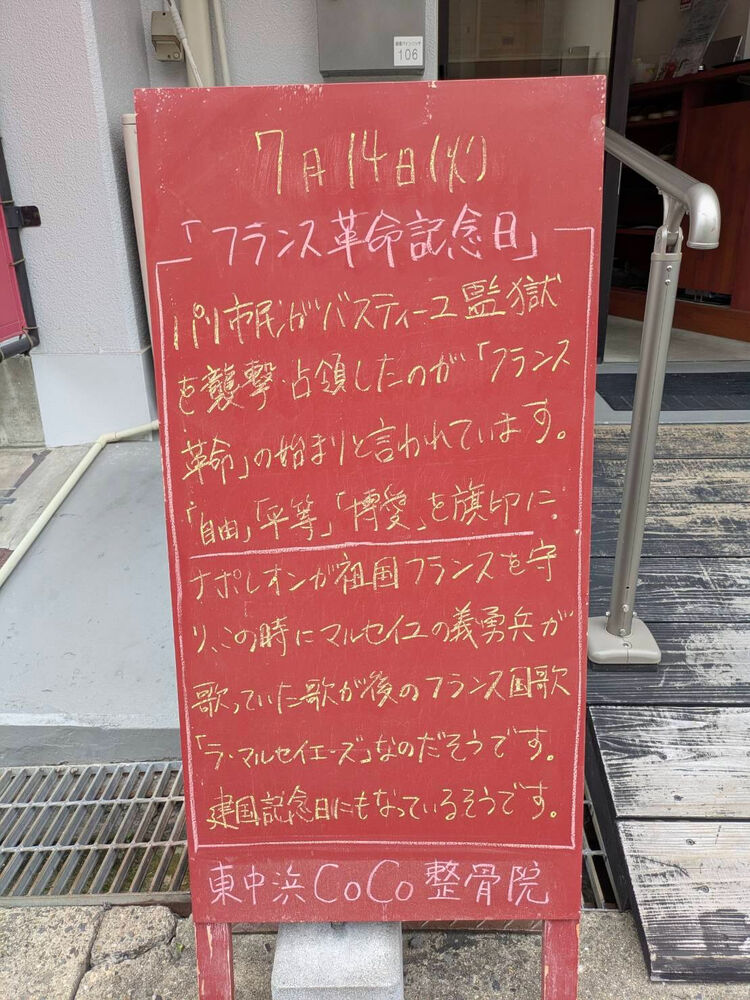 106
7月14日(火)
「フランス革命記念日」
パリ市民がバスティーユ監獄
を襲撃・占領したのが「フランス
革命」の始まりと言われています。
「自由」「平等」「博愛」を旗印に、
ナポレオンが祖国フランスを守
り、この時にマルセイユの義勇兵が
歌っていた歌が後のフランス国歌
「ラ・マルセイエーズ」なのだそうです。
建国記念日にもなっているそうです。
東中浜CoCo整骨院